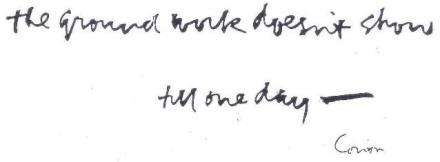 the ground work doesn't show
till one day —